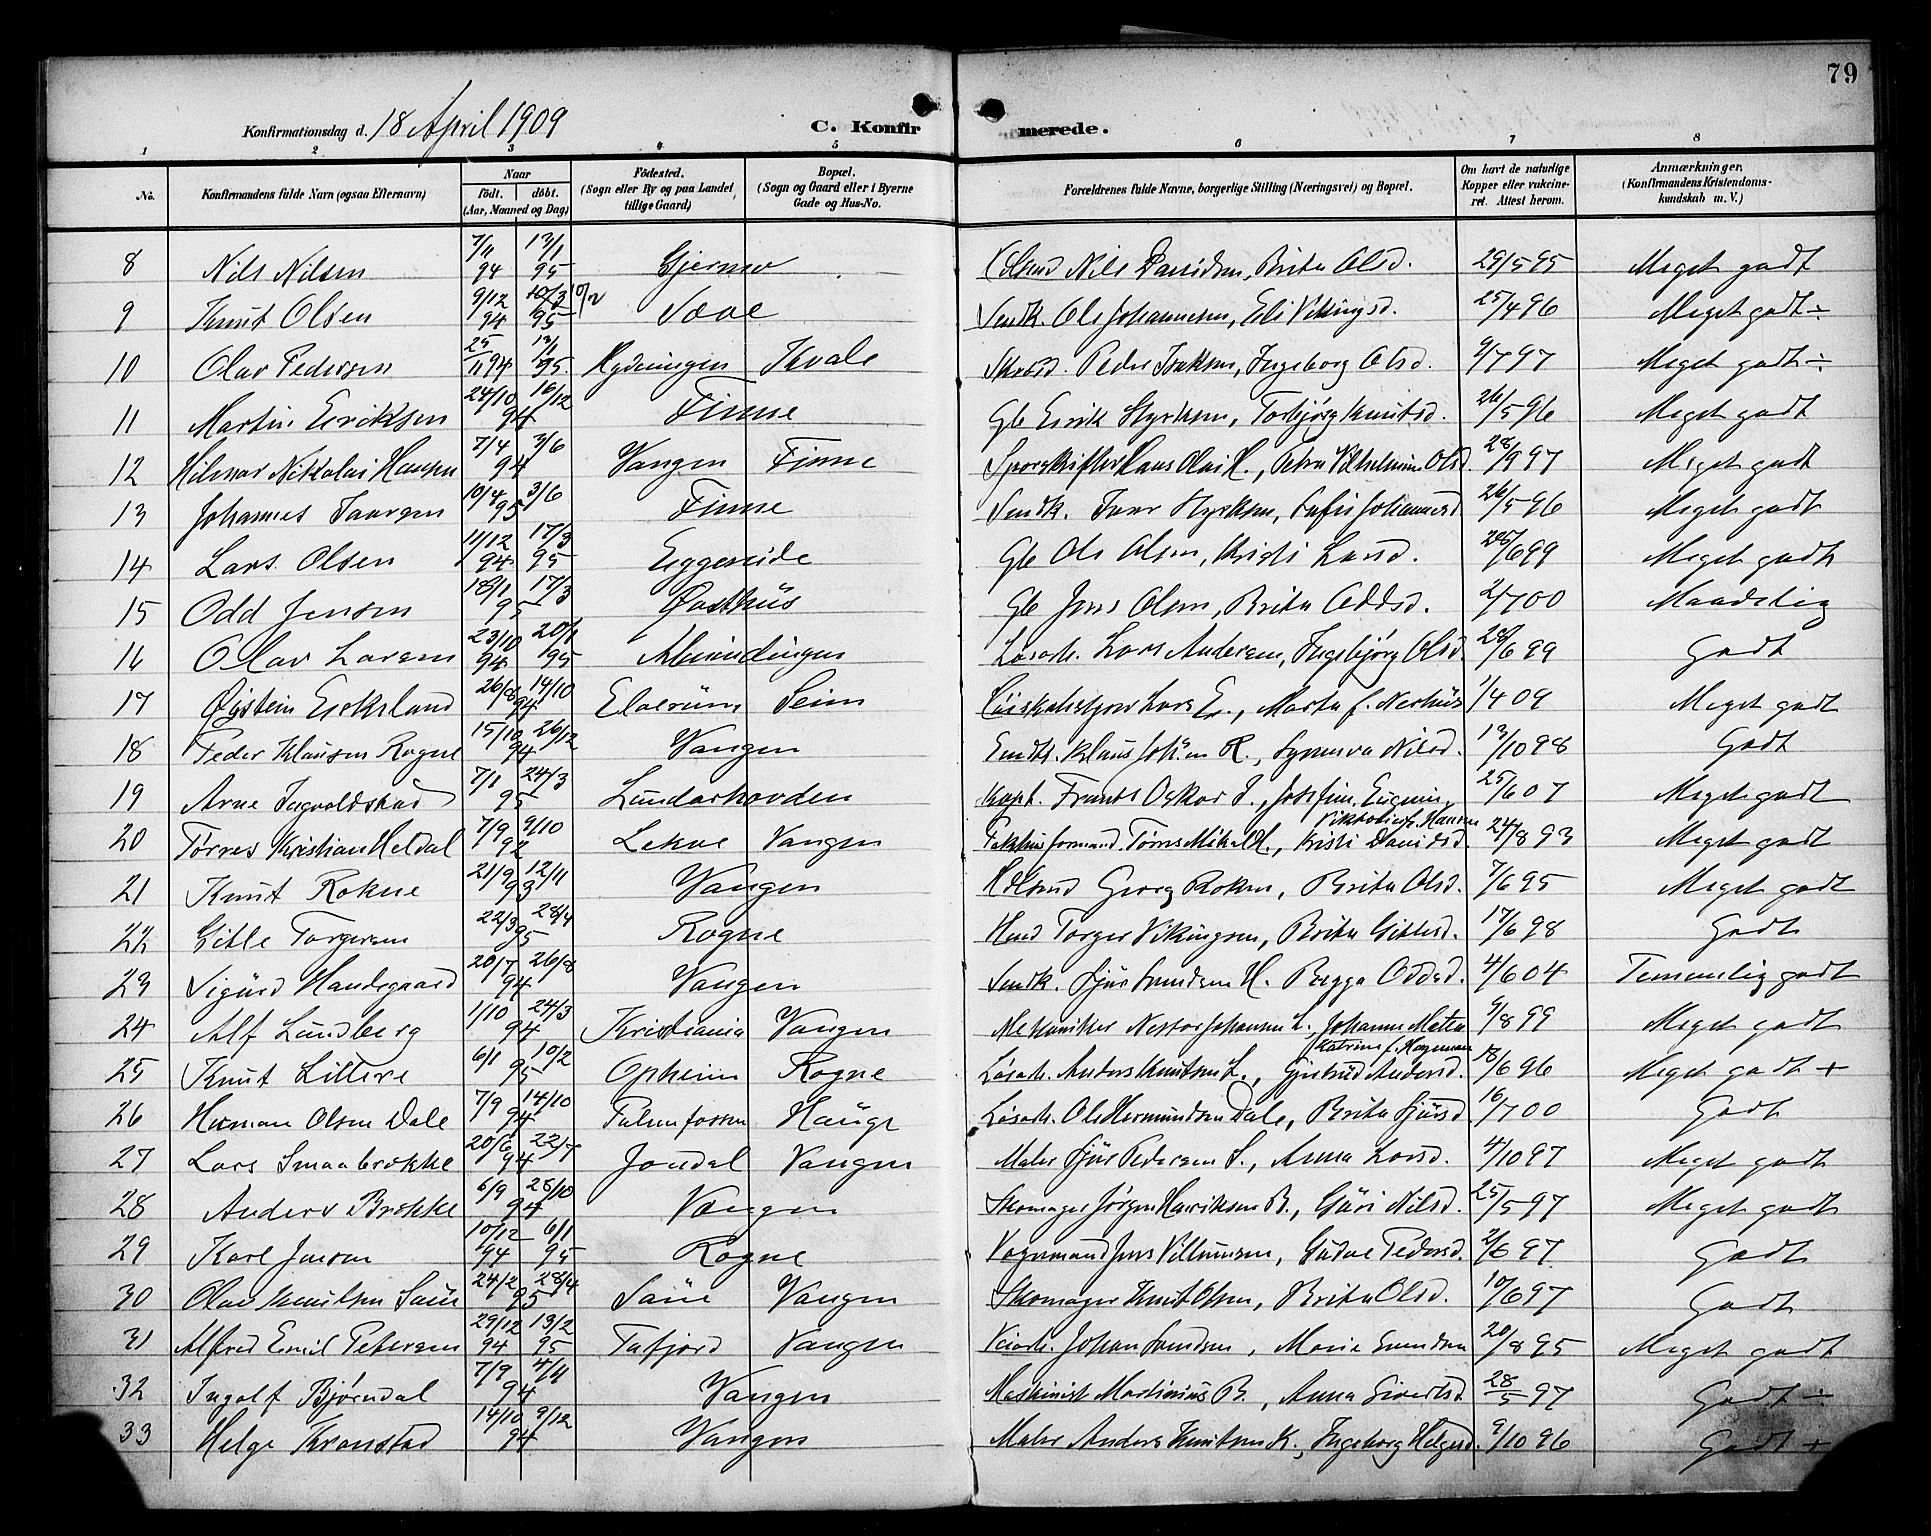 79
Konfirmationsdag d. 18 April 1909 C. Konfirmerede.
1 2 3 4 5 6 7 8
No. Konfirmandens fulde Navn (ogsaa Efternavn) Naar født. døbt. (Aar, Maaned og Dag) Födested. (Sogn eller By og paa Landet tillige Gaard) Bopæl. (Sogn og Gaard eller i Byerne Gade og Hus-No. Forældrenes fulde Navne, borgerlige Stilling (Næringsvei) og Bopæl. Om havt de naturlige Kopper eller vakcineret. Attest herom. Anmærkninger, (Konfirmandens Kristendomskundskab m. V.)
8 Nils Nilsen 7/11 94 13/1 95 Gjerme Nils Davidsen, Brita Olsd. 29/5 95 Meget godt
9 Knut Olsen 9/12 94 10/2 95 Sæve Smdk. Ole Johannesen, Eli Vikingsd. 25/4 96 Meget godt ÷
10 Olav Pedersen 25/11 94 13/1 95 Kydningen Kvale Peder Isaksen, Ingeborg Olsd. 9/7 97 Meget godt ÷
11 Martin Eriksen 24/10 16/12 94 Finne Gb Erik Styrksen, Torbjørg Knutsd. 26/5 96 Meget godt
12 Hilmar Nikolai Hansen 7/4 3/6 94 Vangen Finne Sporskifter Hans Olai H., Petra Vilhelmine Olsd. 28/9 97 Meget godt
13 Johannes Ivarsen 10/4 3/6 95 Finne Smdk. Ivar Styrksen, Johannesd. 26/5 96 Meget godt
14 Lars Olsen 11/12 94 17/3 95 Eggereide Gb Ole Olsen, Kristi Larsd. 25/6 99 Meget godt
15 Odd Jensen 18/1 17/3 95 Østhus Gb Jens Olsen, Brita Oddsd. 2/7 00 Maadelig
16 Olav Larsen 23/10 94 20/1 95 Almindingen Løsarb. Lars Andersen, Ingebjørg Olsd. 28/6 99 Godt
17 Øystein Eskeland 26/8 14/10 94 Elverum Seim Lars E., Marta f. Nerhus 1/4 09 Meget godt
18 Peder Klausen Rogne 15/10 26/12 94 Vangen Klaus Joh.sen R., Synneva Nilsd. 13/10 98 Godt
19 Arne Ingvaldstad 7/1 24/3 95 Lundarhovden Kapt. Frants Oskar I., Josefine Eugenie Viktoria f. Hansen 25/6 07 Meget godt
20 Tørres Kristian Heldal 7/9 9/10 92 Lekve Vangen Pakhusformand Tørres Mikal H., Kristi Davidsd. 24/8 93 Meget godt
21 Knut Rokne 21/9 12/11 93 Vangen Georg Roknen, Brita Olsd. 7/6 95 Meget godt
22 Gitle Torgersen 22/3 28/4 95 Rogne Hmd Torger Vikingsen, Brita Gitlesd. 17/6 98 Godt
23 Sigurd Handegaard 20/7 26/8 94 Vangen Smdk. Sjur Amundsen H. Bægga Oddsd. 4/6 04 Temmelig godt
24 Alf Lundberg 1/10 24/3 94 Kristiania Vangen Mekaniker Nestor Johansen L. Johanne Matea Katrine f. Hageman 9/8 99 Meget godt
25 Knut Littere 6/1 10/2 95 Opheim Rogne Løsarb. Anders Knutsen L., Gjertrud Andersd. 18/6 96 Meget godt +
26 Herman Olsen Dale 7/9 14/10 94 Palmafossen Hauge Løsarb. Ole Hermundsen Dale, Brita Sjursd 16/7 00 Godt
27 Lars Smaabrekke 20/6 22/7 94 Jondal Vangen Maler Sjur Pedersen S., Anna Larsd. 4/10 97 Meget godt
28 Anders Brekke 6/9 28/10 94 Vangen Skomager Jørgen Henriksen B., Guri Nilsd. 25/5 97 Meget godt
29 Karl Jensen 10/12 94 6/1 95 Rogne Vognmand Jens Villumsen, Gudve Pedersd. 2/6 97 Godt
30 Olav Knutsen Saue 24/2 28/4 95 Saue Vangen Skomager Knut Olsen, Brita Olsd. 10/6 97 Godt
31 Alfred Emil Petersen 29/12 94 13/2 95 Tafjord Vangen Veiarb. Johan Svendsen, Marie Svendsen 20/8 95 Meget godt
32 Ingolf Bjørndal 7/9 4/11 94 Vangen Maskinist Martinius B., Anna Sivertsd. 28/5 97 Godt ÷
33 Helge Kronstad 14/10 9/12 94 Vangen Maler Anders Knutsen K., Ingeborg Helgesd. 9/10 96 Godt +